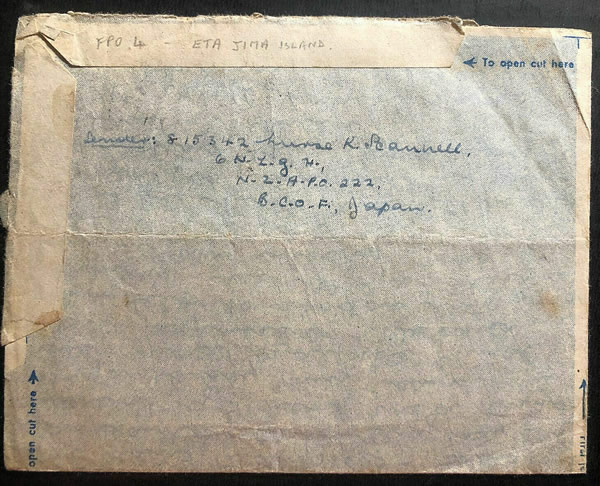 FPO 4 - ETA JIMA ISLAND.
← To open cut here
Sender: 815342 Nurse K. Scannell,
6 N.Z.G.H.,
N.Z.A.P.O. 222,
B.C.O.F., Japan.
open cut here →